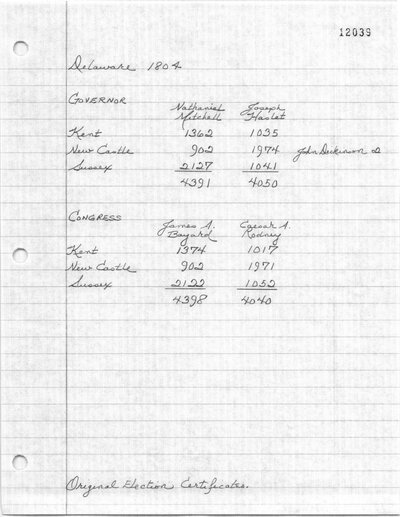 12039
Delaware 1804
GOVERNOR
Nathaniel Joseph
Mitchell Haslet
Kent 1362 1035
New Castle 902 1974 John Dickinson 2
Sussex 2127 1041
4391 4050
CONGRESS
James A. Caesar A.
Bayard Rodney
Kent 1374 1017
New Castle 902 1971
Sussex 2122 1052
4398 4040
Original Election Certificates.